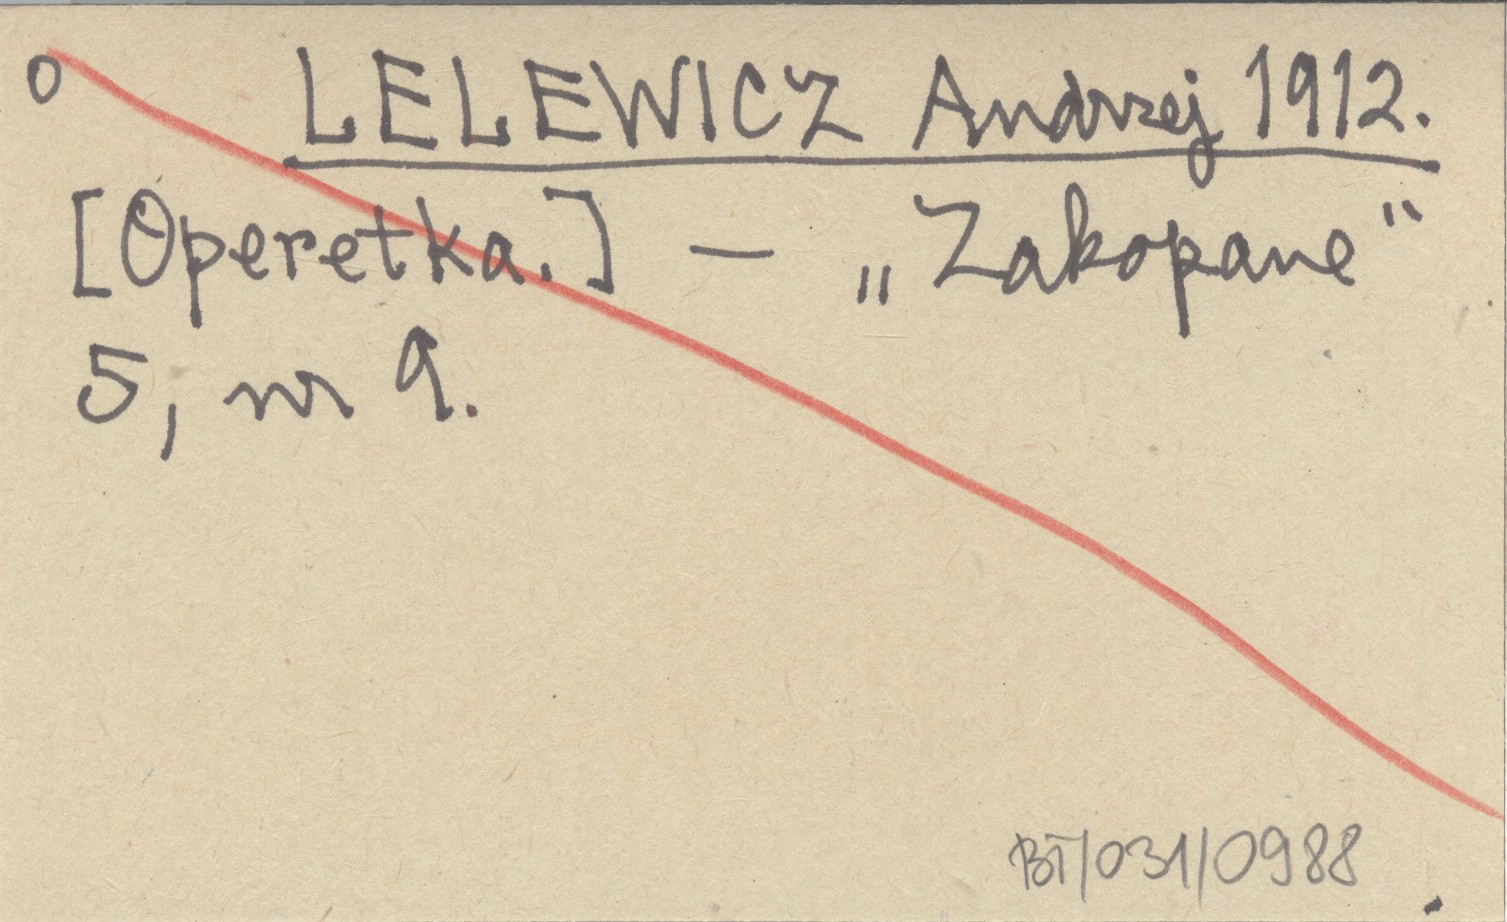 o LELEWICZ Andrzej 1912.
[Operetka.] — „Zakopane“
5, nr 9.
BT/031/0988